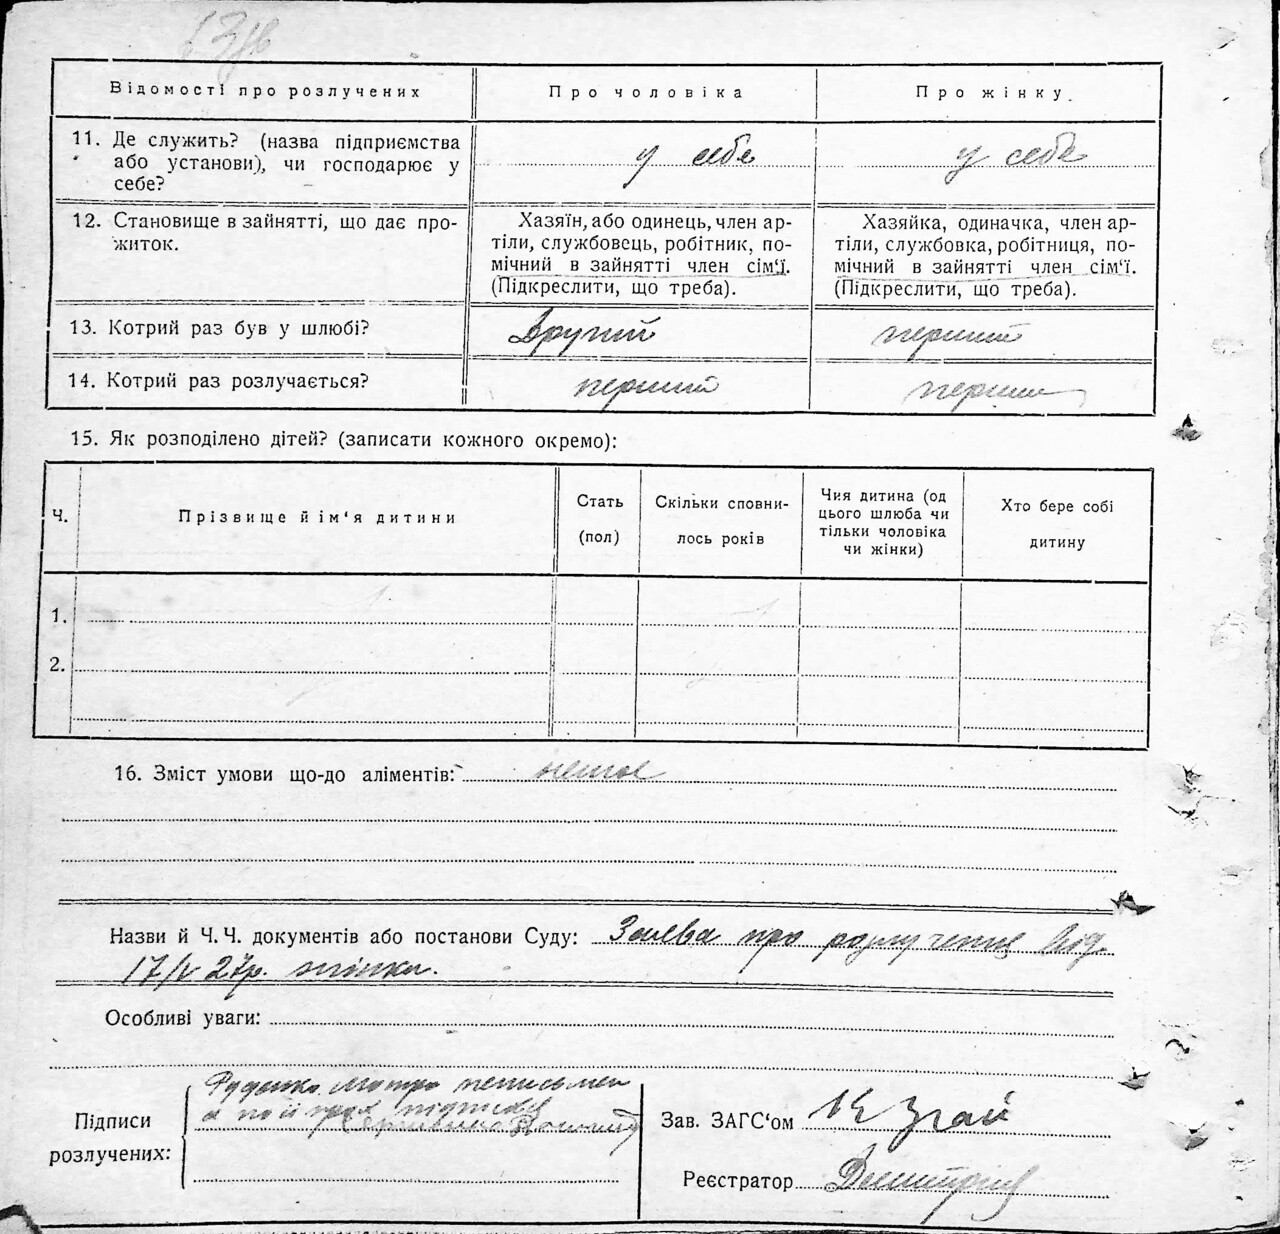 Відомості про розлучених
Про чоловіка
Про жінку
11. Де служить? (назва підприємства
або установи), чи господарює у
себе?
у себе
у себе
12. Становище в зайнятті, що дає про-
житок.
Хазяїн, або одинець, член ар-
тіли, службовець, робітник, по-
мічний в зайнятті член сім‘ї.
(Підкреслити, що треба).
Хазяйка, одиначка, член ар-
тіли, службовка, робітниця, по-
мічний в зайнятті член сім‘ї.
(Підкреслити, що треба).
13. Котрий раз був у шлюбі?
Другий
перший
14. Котрий раз розлучається?
перший
перший
15. Як розподілено дітей? (записати кожного окремо):
Ч.
Прізвище й ім‘я дитини
Стать
(пол)
Скільки сповни-
лось років
Чия дитина (од
цього шлюба чи
тільки чоловіка
чи жінки)
Хто бере собі
дитину
1.
2.
16. Зміст умови що-до аліментів:
Назви й Ч. Ч. документів або постанови Суду: Заява про розлучення від
17/V 27р. жінки.
Особливі уваги:
Підписи
розлучених:
Руденко Мотря неписьмен
а по її прох підписав
Зав. ЗАГС‘ом
Реєстратор